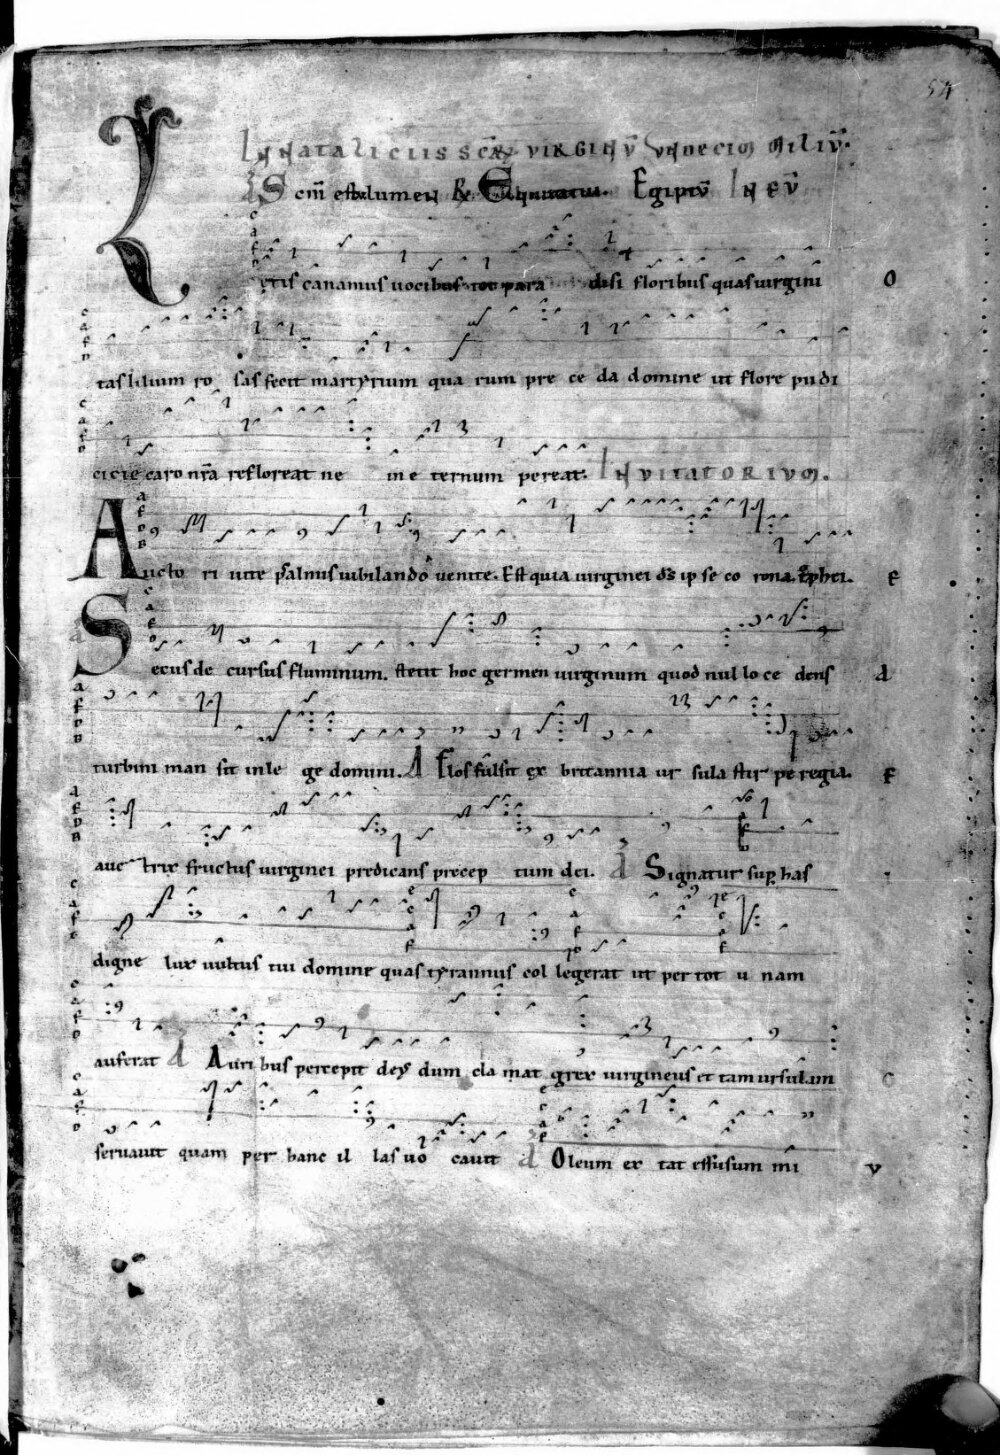 54
In nataliciis scarum virginū undecim miliū.
ʒ S cim est lumen R Egiptū In ev̄
L
ętis canamus vocibus tot para disi floribus quas virgini O
tas lilium ro sas fecit martyrium qua rum pre ce da domine ut flore pudi
cicie caro nr̄a refloreat ne in e ternum pereat. Invitatorium.
Aucto ri vite psalmus iubilando venite. Est quia virginei ds ip se co rona trophei. E
Secus de cursus fluminum. stetit hoc germen virginum quod nul lo ce dens d
turbini man sit in le ge domini. A Flos fulsit ex britannia ur sula stir pe regia. F
auc trix fructus virginei predicans precep tum dei. d Signatur sup has
digne lux vultus tui domine quas tyrannus col legerat ut per tot u nam
auferat d Auri bus percepit deus dum cla mat grex virgineus et tam ursulam C
servavit quam per hanc il las vo cavit d Oleum ex tat effusum mi v